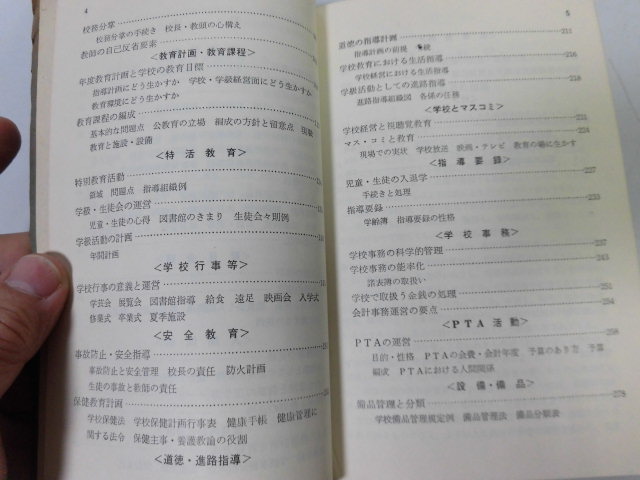 4
校務分掌
校務分掌の手続き 校長・教頭の心構え
教師の自己反省要素
<教育計画・教育課程>
年度教育計画と学校の教育目標
指導計画にどう生かすか 学校・学級経営面にどう生かすか
教育環境にどう生かすか
教育課程の編成
基本的な問題点 公教育の立場 編成の方針と留意点
教育と施設・設備
<特活教育>
特別教育活動
領域 問題点 指導組織例
学級・生徒会の運営
児童・生徒の心得 図書館のきまり 生徒会々則例
学級活動の計画
年間計画
<学校行事等>
学校行事の意義と運営
学芸会 展覧会 図書館指導 給食 遠足 映画会 入学式
修業式 卒業式 夏季施設
<安全教育>
事故防止・安全指導
事故防止と安全管理 校長の責任 防火計画
生徒の事故と教師の責任
保健教育計画
学校保健法 学校保健計画行事表 健康手帳 健康管理に
関する法令 保健主事・養護教諭の役割
<道徳・進路指導>
5
道徳の指導計画……211
指導計画の前提
学校教育における生活指導……216
学校経営における生活指導
学級活動としての進路指導……218
進路指導組織図 各係の任務
<学校とマスコミ>
学校経営と視聴覚教育……221
マス・コミと教育……224
現場での実状 学校放送 映画・テレビ 教育の場に生かす
<指導要録>
児童・生徒の入退学……231
手続きと処理
指導要録……234
学齢簿 指導要録の性格
<学校事務>
学校事務の科学的管理……237
学校事務の能率化……243
諸表簿の取扱い
学校で取扱う金銭の処理……247
会計事務運営の要点
<PTA活動>
PTAの運営……258
目的・性格 PTAの会費・会計年度 予算のあり方 予算
編成 PTAにおける人間関係
<設備・備品>
備品管理と分類……278
学校備品管理規定例 備品管理法 備品分類表